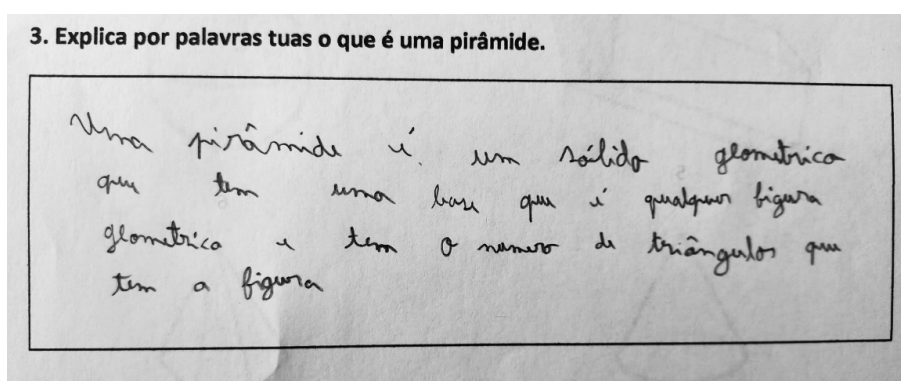 3. Explica por palavras tuas o que é uma pirâmide.
Uma pirâmide é um sólido geometrico
que tem uma base que é qualquer figura
geometrica e tem o numero de triângulos que
tem a figura